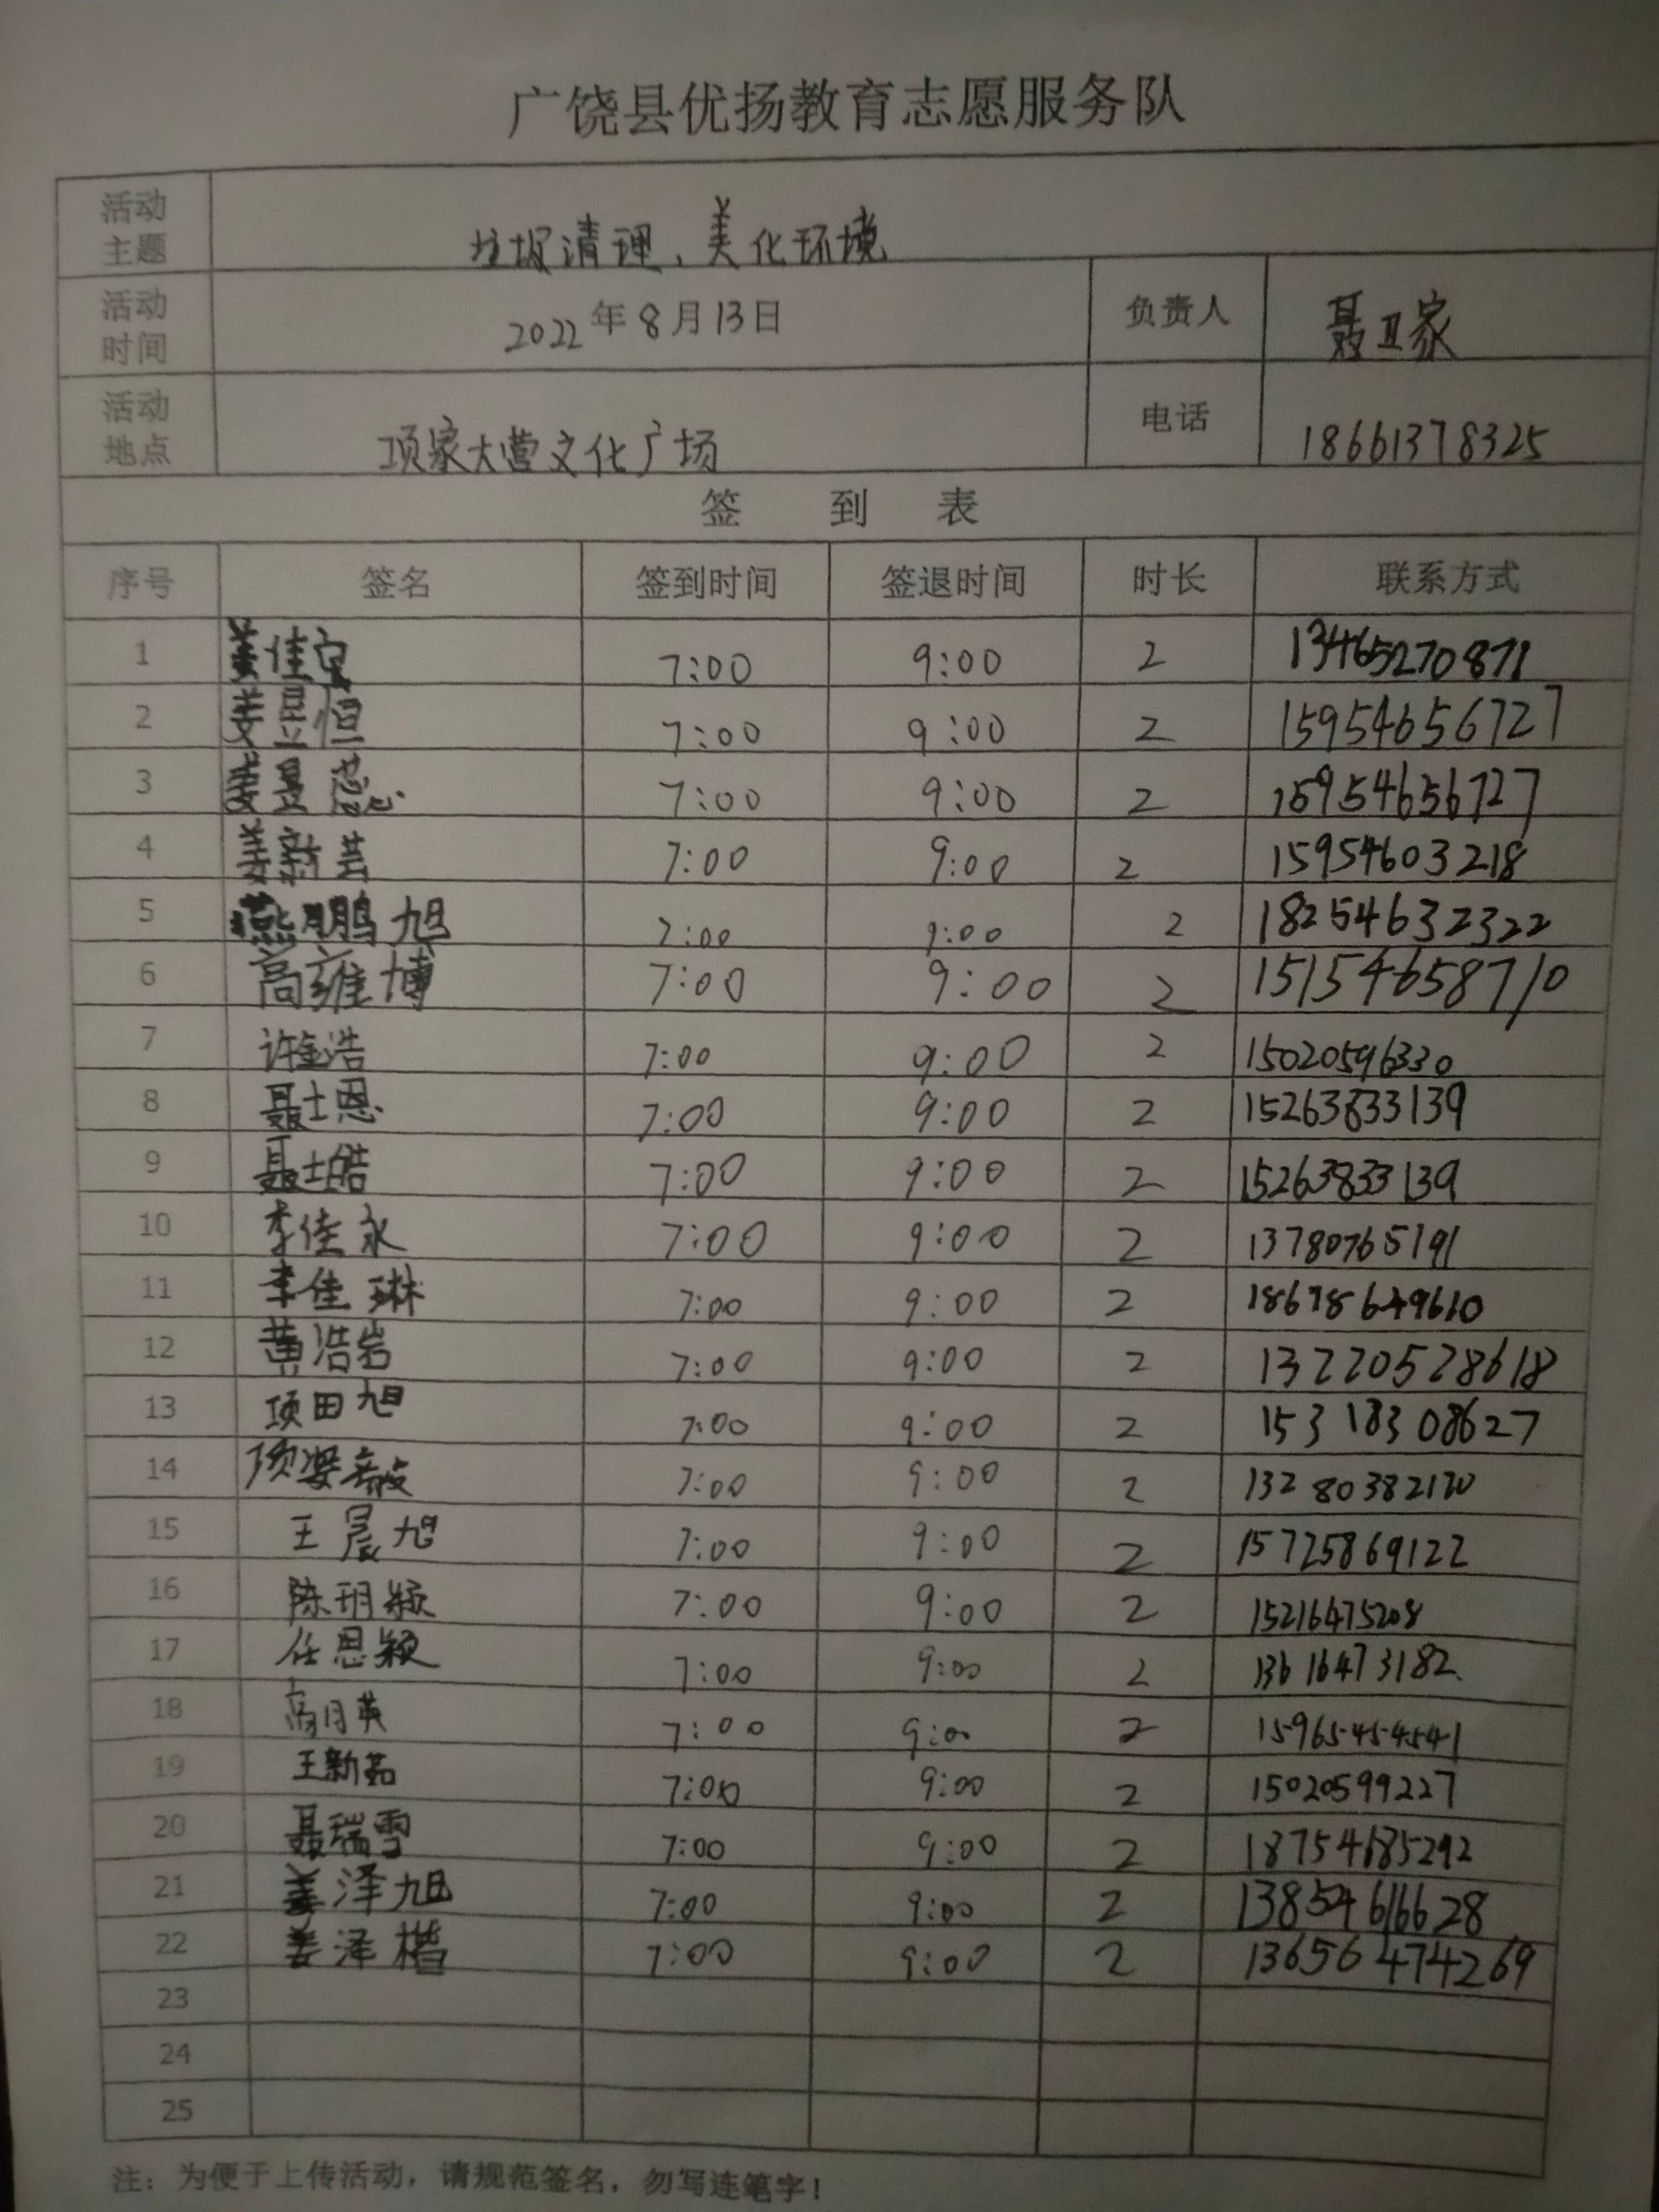 广饶县优扬教育志愿服务队
活动主题 垃圾清理、美化环境
活动时间 2022年8月13日 负责人 聂卫家
活动地点 项家大营文化广场 电话 18661378325
签到表
序号 签名 签到时间 签退时间 时长 联系方式
1 姜佳 7:00 9:00 2 13465270871
2 姜昱恒 7:00 9:00 2 15954656727
3 姜昱 7:00 9:00 2 15954656727
4 姜新芸 7:00 9:00 2 15954603218
5 燕鹏旭 7:00 9:00 2 18254632322
6 高雍博 7:00 9:00 2 15154658710
7 许金浩 7:00 9:00 2 15020596330
8 聂士恩 7:00 9:00 2 15263833139
9 聂士皓 7:00 9:00 2 15263833139
10 李佳永 7:00 9:00 2 13780765191
11 李佳琳 7:00 9:00 2 18678649610
12 黄浩岩 7:00 9:00 2 13220528618
13 项田旭 7:00 9:00 2 15318308627
14 项 7:00 9:00 2 13280382120
15 王晨旭 7:00 9:00 2 15725869122
16 陈玥颖 7:00 9:00 2 15216475208
17 任思颖 7:00 9:00 2 13616473182
18 高月英 7:00 9:00 2 15965454541
19 王新茹 7:00 9:00 2 15020599227
20 聂瑞雪 7:00 9:00 2 18754685292
21 姜泽旭 7:00 9:00 2 13854616628
22 姜泽楷 7:00 9:00 2 13656474269
23
24
25
注：为便于上传活动，请规范签名，勿写连笔字！